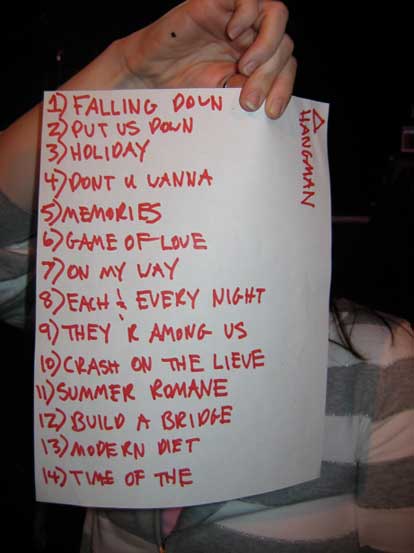 1) FALLING DOWN
2) PUT US DOWN
3) HOLIDAY
4) DONT U WANNA
5) MEMORIES
6) GAME OF LOVE
7) ON MY WAY
8) EACH & EVERY NIGHT
9) THEY 'R AMONG US
10) CRASH ON THE LIEVE
11) SUMMER ROMANE
12) BUILD A BRIDGE
13) MODERN DIET
14) TIME OF THE
△ HANGMAN